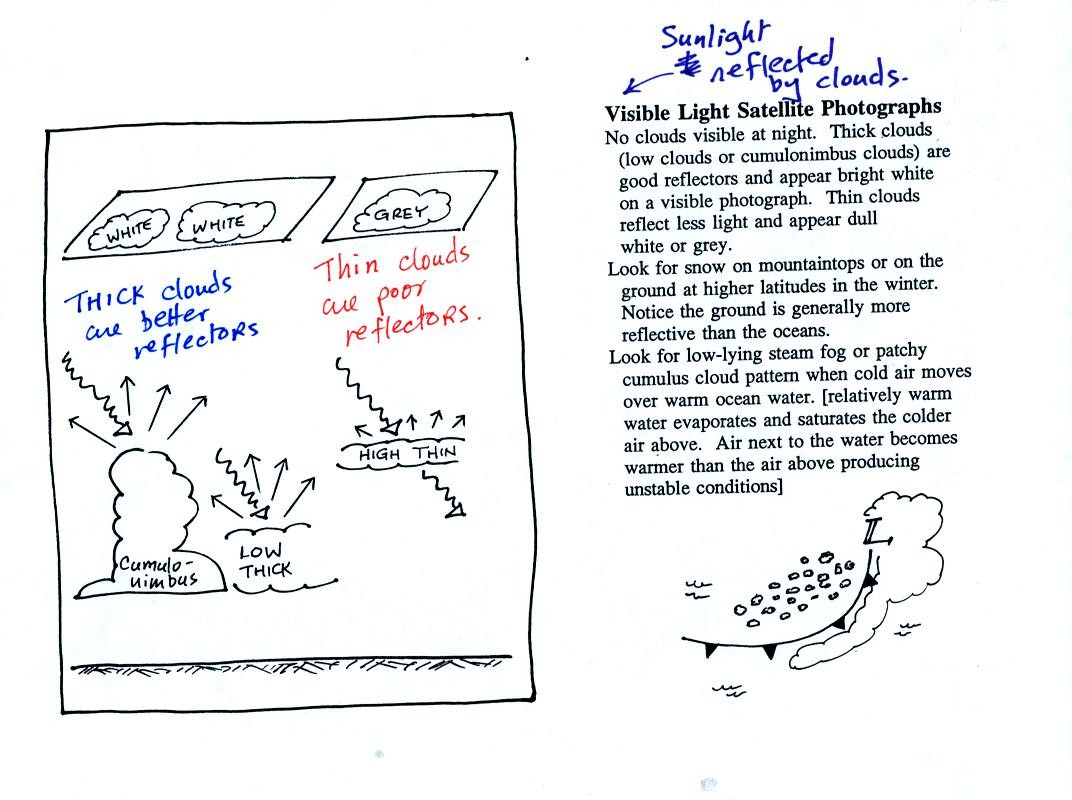 WHITE
WHITE
GREY
THICK clouds
are better
reflectors
Thin clouds
are poor
reflectors.
HIGH THIN
Cumulo-
nimbus
LOW
THICK
Sunlight
reflected
by clouds.
Visible Light Satellite Photographs
No clouds visible at night. Thick clouds
(low clouds or cumulonimbus clouds) are
good reflectors and appear bright white
on a visible photograph. Thin clouds
reflect less light and appear dull
white or grey.
Look for snow on mountaintops or on the
ground at higher latitudes in the winter.
Notice the ground is generally more
reflective than the oceans.
Look for low-lying steam fog or patchy
cumulus cloud pattern when cold air moves
over warm ocean water. [relatively warm
water evaporates and saturates the colder
air above. Air next to the water becomes
warmer than the air above producing
unstable conditions]
L